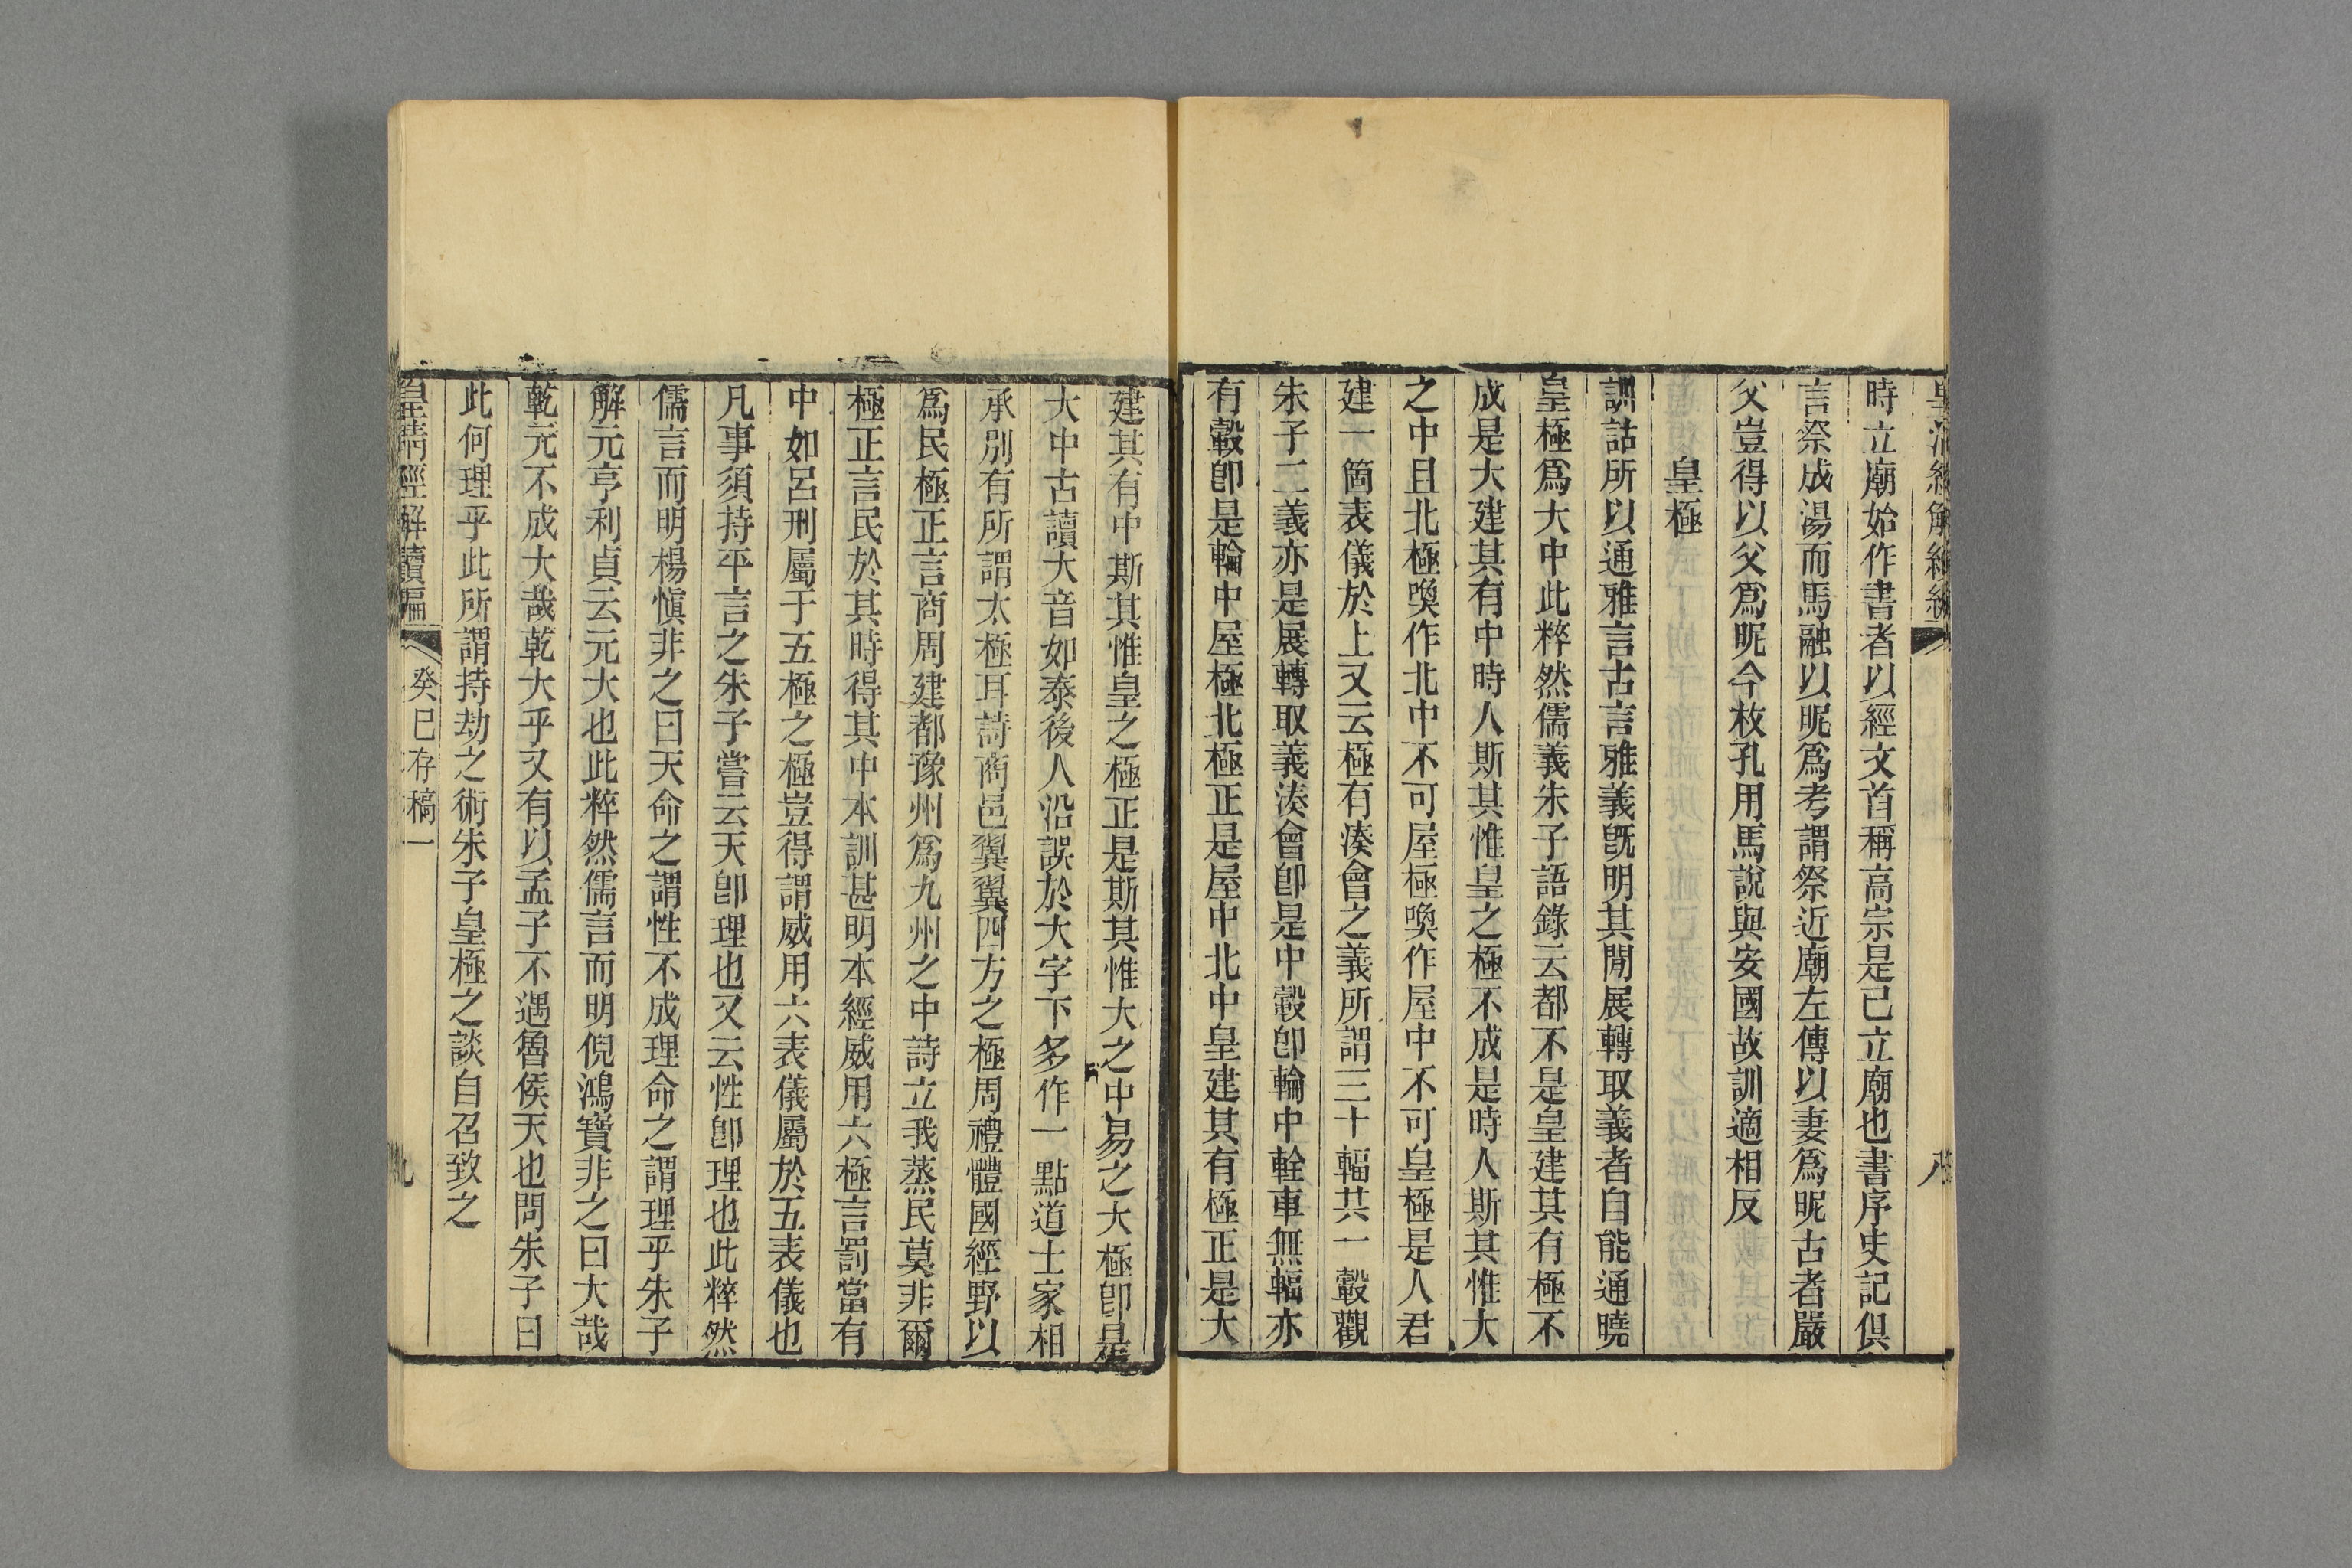 皇清經解續編
八
時立廟始作書者以經文首稱高宗是已立廟也書序史記俱
言祭成湯而馬融以昵爲考謂祭近廟左傳以妻爲昵古者嚴
父豈得以父爲昵今枚孔用馬說與安國故訓適相反
皇極
訓詁所以通雅言古言雅義旣明其閒展轉取義者自能通曉
皇極爲大中此粹然儒義朱子語錄云都不是皇建其有極不
成是大建其有中時人斯其惟皇之極不成是時人斯其惟大
之中且北極喚作北中不可屋極喚作屋中不可皇極是人君
建一箇表儀於上又云極有湊會之義所謂三十輻共一轂觀
朱子二義亦是展轉取義湊會卽是中轂卽輪中輇車無輻亦
有轂卽是輪中屋極北極正是屋中北中皇建其有極正是大
建其有中斯其惟皇之極正是斯其惟大之中易之大極卽是
大中古讀大音如泰後人沿誤於大字下多作一點道士家相
承別有所謂太極耳詩商邑翼翼四方之極周禮體國經野以
爲民極正言商周建都豫州爲九州之中詩立我蒸民莫非爾
極正言民於其時得其中本訓甚明本經威用六極言罰當有
中如呂刑屬于五極之極豈得謂威用六表儀屬於五表儀也
凡事須持平言之朱子嘗云天卽理也又云性卽理也此粹然
儒言而明楊愼非之曰天命之謂性不成理命之謂理乎朱子
解元亨利貞云元大也此粹然儒言而明倪鴻寶非之曰大哉
乾元不成大哉乾大乎又有以孟子不遇魯侯天也問朱子曰
此何理乎此所謂持劫之術朱子皇極之談自召致之
皇清經解續編
癸巳存稿一
九